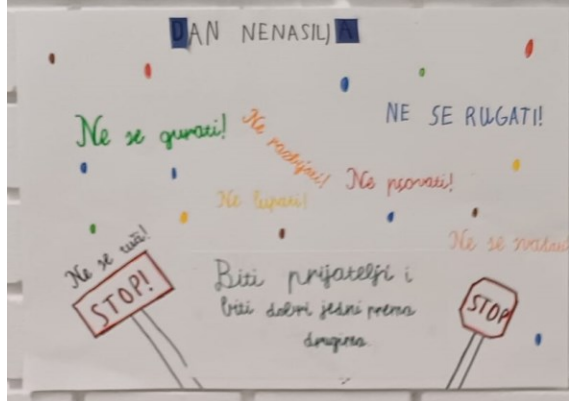 DAN NENASILJA
NE SE RUGATI!
Ne se gurati!
Ne razbijati!
Ne psovati!
Ne lupati!
Ne se
Ne se tuč!
STOP!
Biti prijatelji i
biti dobri jedni prema
drugima.
STOP